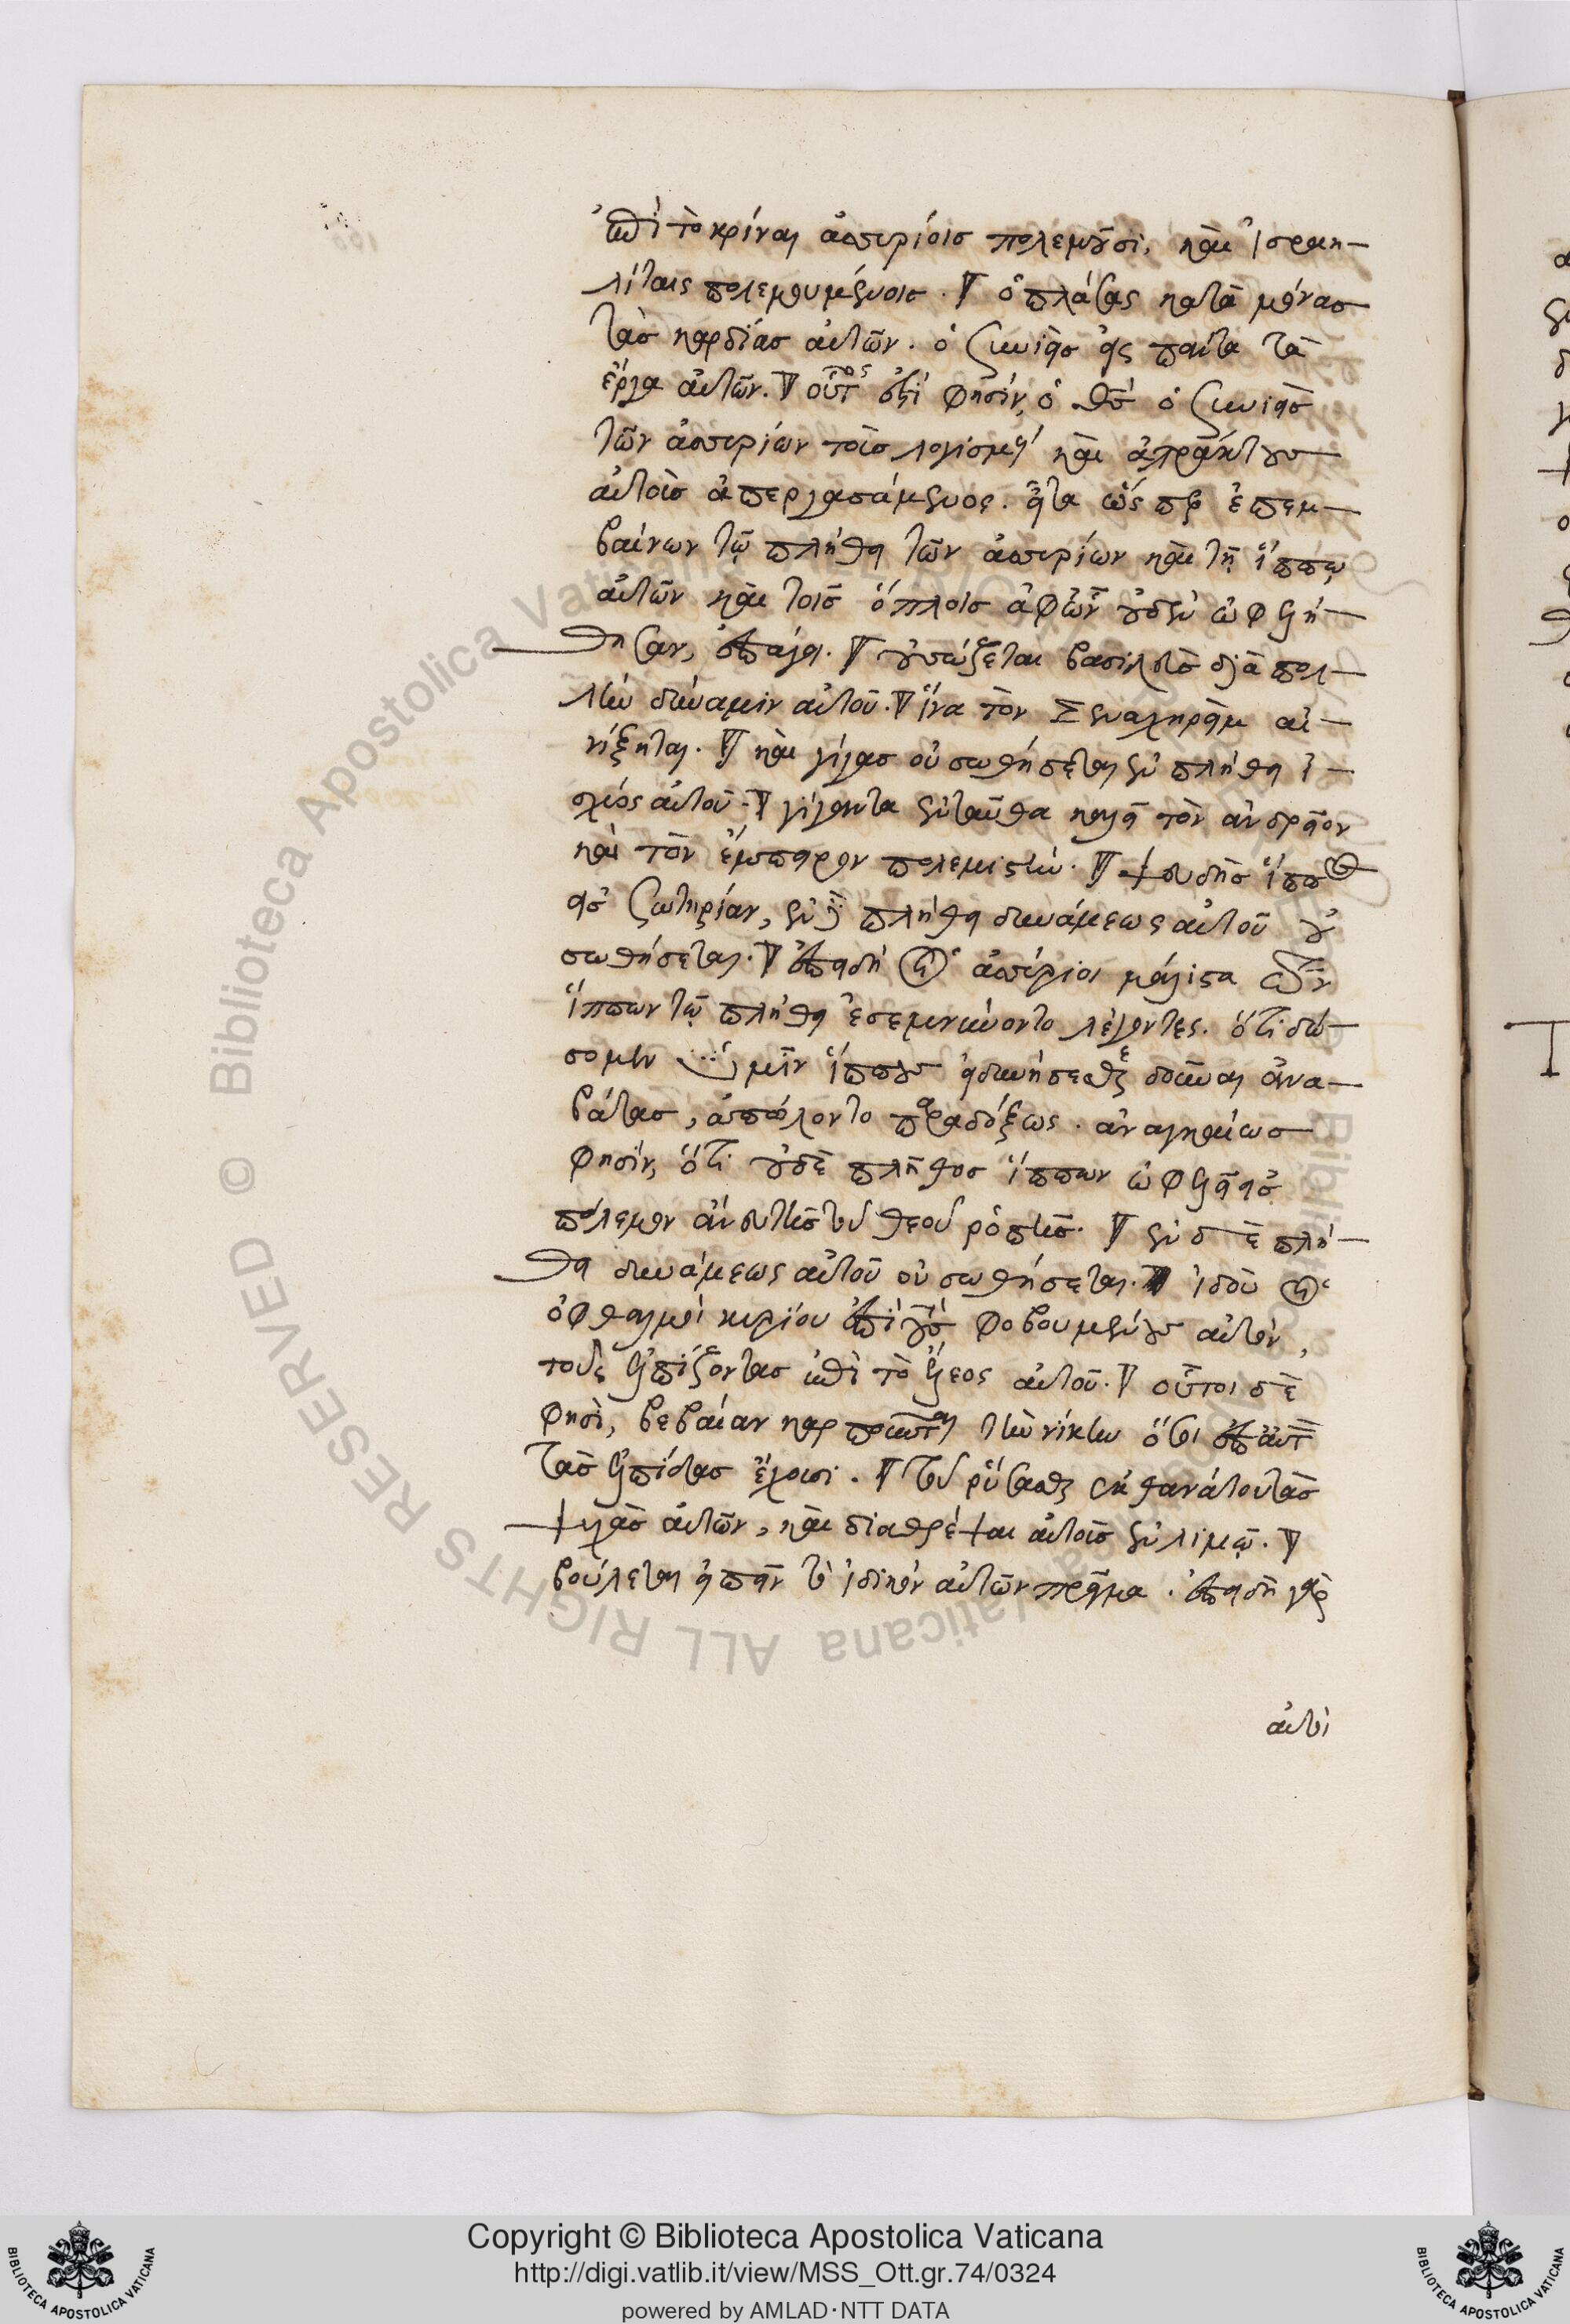 ἐπὶ τὸ κρίναι ἀσσυρίοις πολεμοῦσι, καὶ Ἰσραη-
λίταις πολεμουμένοις. ὁ πλάσας κατὰ μόνας
τὰς καρδίας αὐτῶν. ὁ συνιεὶς εἰς πάντα τὰ
ἔργα αὐτῶν. οὗτος ἐστί φησίν, ὁ θς ὁ συνιεὶς
τῶν ἀσσυρίων τοῖς λογισμοῖς καὶ ἀπράκτους
αὐτοῖς ἀπεργασάμενος. εἶτα ὥσπερ ἐπεμ-
βαίνων τῷ πλήθει τῶν ἀσσυρίων καὶ τῇ ἵππῳ
αὐτῶν καὶ τοῖς ὅπλοις ἀφ' ὧν οὐδὲν ὠφελή-
θησαν, ἐπάγει. οὐ σώζεται βασιλεὺς διὰ πολ-
λὴν δύναμιν αὐτοῦ. ἵνα τὸν Σεναχηρεὶμ αἰ-
νίξηται. καὶ γίγας οὐ σωθήσεται ἐν πλήθει ἰ-
σχύος αὐτοῦ. γίγαντα ἐνταῦθα καλεῖ τὸν ἀνδρεῖον
καὶ τὸν ἔμπειρον πολεμιστήν. ψευδὴς ἵππος
εἰς σωτηρίαν, ἐν δὲ πλήθει δυνάμεως αὐτοῦ οὐ
σωθήσεται. ἐπειδὴ οἱ ἀσσύριοι μάλιστα τῶν
ἵππων τῷ πλήθει ἐσεμνύνοντο λέγοντες. ὅτι δώ-
σομεν ὑμῖν ἵππους εἰ δυνήσεσθε δοῦναι ἀνα-
βάτας, ἀπώλοντο παραδόξως. ἀναγκαίως
φησίν, ὅτι οὐδὲ πλῆθος ἵππων ὠφελεῖ εἰς
πόλεμον ἄνευ τῆς τοῦ θεοῦ ῥοπῆς. ἐν δὲ πλή-
θει δυνάμεως αὐτοῦ οὐ σωθήσεται. ἰδοὺ οἱ
ὀφθαλμοὶ κυρίου ἐπὶ τοὺς φοβουμένους αὐτόν,
τοὺς ἐλπίζοντας ἐπὶ τὸ ἔλεος αὐτοῦ. οὗτοι δὲ
φησὶ, βεβαίαν καρποῦνται τὴν νίκην ὅτι ἐπ' αὐτ
τὰς ἐλπίδας ἔχουσι. τοῦ ῥύσασθαι ἐκ θανάτου τὰς
ψυχὰς αὐτῶν, καὶ διαθρέψαι αὐτοὺς ἐν λιμῷ.
βούλεται εἰπεῖν τὸ ἰδικὸν αὐτῶν πρᾶγμα. ἐπειδὴ γὰρ
αὐτοὶ
Copyright © Biblioteca Apostolica Vaticana
http://digi.vatlib.it/view/MSS_Ott.gr.74/0324
powered by AMLAD·NTT DATA